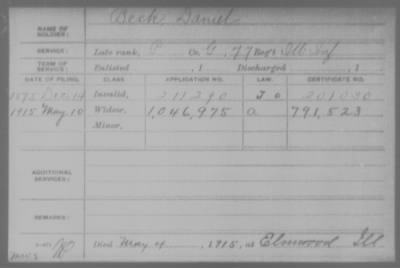 NAME OF SOLDIER: Beck, Daniel
SERVICE: Late rank, P Co. G, 77 Reg't Ill Inf
TERM OF SERVICE: Enlisted , 1 Discharged , 1
DATE OF FILING. CLASS. APPLICATION NO. LAW. CERTIFICATE NO.
1875 Dec 14 Invalid, 211290 201030
1915 May 10 Widow, 1,046,975 a 791,523
Minor,
ADDITIONAL SERVICES:
REMARKS:
Died May 4, 1915, at Elmwood Ill